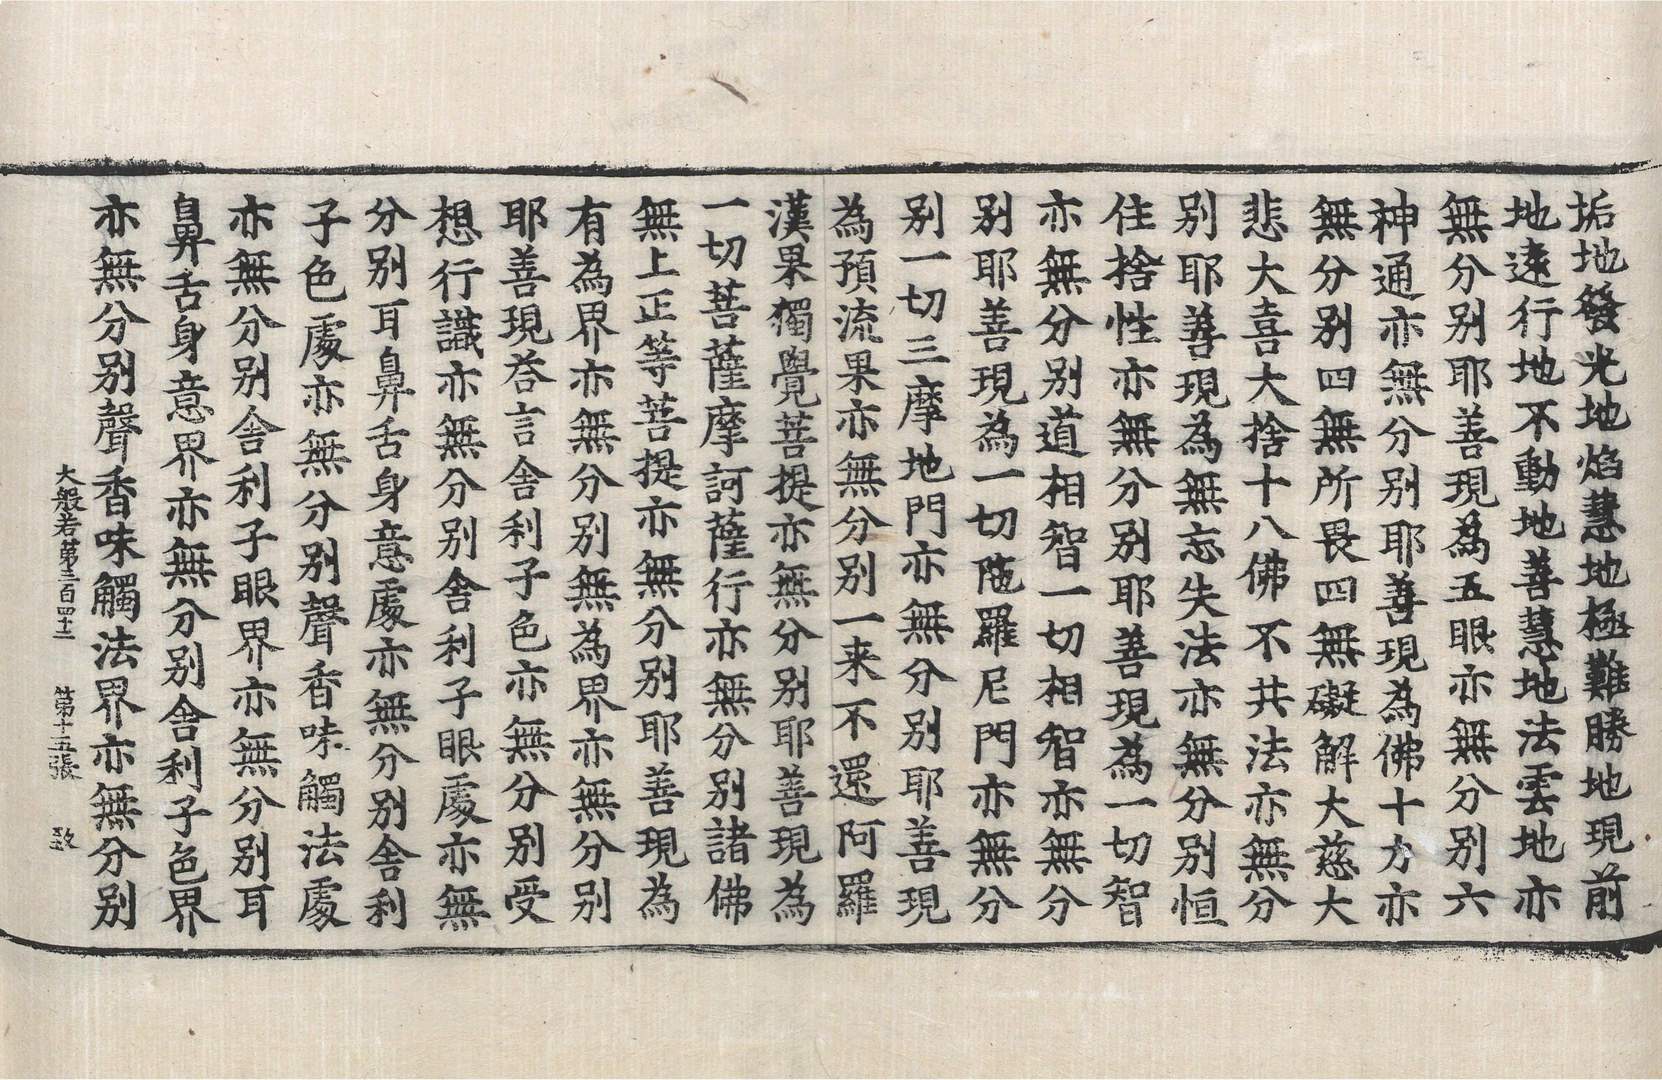 垢地發光地焰慧地極難勝地現前
地遠行地不動地善慧地法雲地亦
無分别耶善現為五眼亦無分别六
神通亦無分别耶善現為佛十力亦
無分别四無所畏四無礙解大慈大
悲大喜大捨十八佛不共法亦無分
别耶善現為無忘失法亦無分别恒
住捨性亦無分别耶善現為一切智
亦無分别道相智一切相智亦無分
别耶善現為一切陁羅尼門亦無分
别一切三摩地門亦無分别耶善現
為預流果亦無分别一来不還阿羅
漢果獨覺菩提亦無分别耶善現為
一切菩薩摩訶薩行亦無分别諸佛
無上正等菩提亦無分别耶善現為
有為界亦無分别無為界亦無分别
耶善現荅言舍利子色亦無分别受
想行識亦無分别舍利子眼處亦無
分别耳鼻舌身意處亦無分别舍利
子色處亦無分别聲香味觸法處
亦無分别舍利子眼界亦無分别耳
鼻舌身意界亦無分别舍利子色界
亦無分别聲香味觸法界亦無分别
大般若第三百四十二 第十五張 致